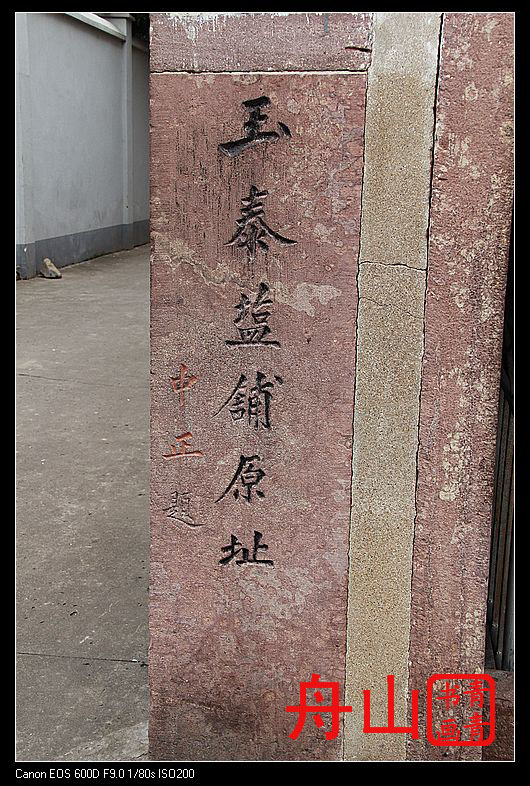 玉泰塩舖原址
中正題
舟山
青青
书画
Canon EOS 600D F9.0 1/80s ISO200